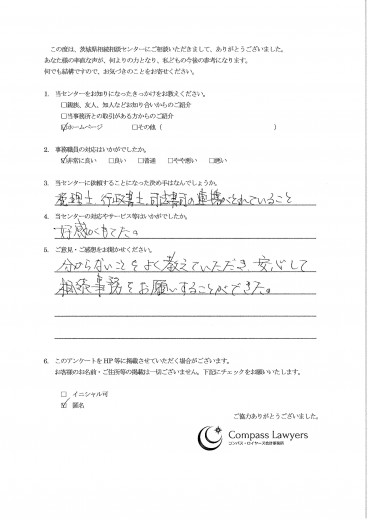 この度は、茨城県相続相談センターにご相談いただきまして、ありがとうございました。
あなた様の率直な声が、何よりの力となり、私どもの今後の参考になります。
何でも結構ですので、お気づきのことをお寄せください。
1. 当センターをお知りになったきっかけをお教えください。
□親族、友人、知人などお知り合いからのご紹介
□当事務所との取引がある方からのご紹介
☑ホームページ □その他（ ）
2. 事務職員の対応はいかがでしたか。
☑非常に良い □良い □普通 □やや悪い □悪い
3. 当センターに依頼することになった決め手はなんでしょうか。
税理士、行政書士、司法書司の連携がとれていること
4. 当センターの対応やサービス等はいかがでしたか。
好感がもてた。
5. ご意見・ご感想をお聞かせください。
分からないことをよく教えていただき安心して
相続事務をお願いすることができた。
6. このアンケートをHP等に掲載させていただく場合がございます。
お客様のお名前・ご住所等の掲載は一切ございません。下記にチェックをお願いいたします。
□ イニシャル可
☑ 匿名
ご協力ありがとうございました。
Compass Lawyers
コンパス・ロイヤーズ会計事務所